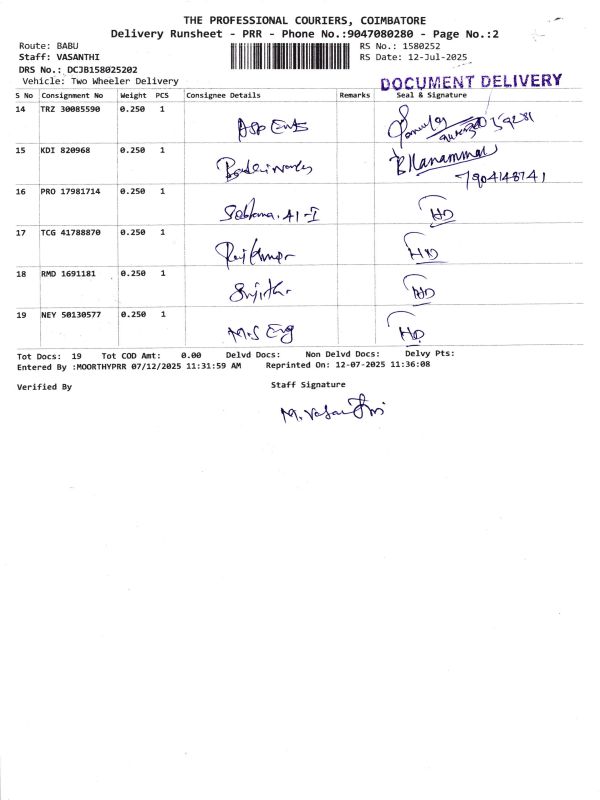 THE PROFESSIONAL COURIERS, COIMBATORE
Delivery Runsheet - PRR - Phone No.:9047080280 - Page No.:2
Route: BABU
RS No.: 1580252
Staff: VASANTHI
RS Date: 12-Jul-2025
DRS No.: DCJB158025202
Vehicle: Two Wheeler Delivery
DOCUMENT DELIVERY
S No Consignment No Weight PCS Consignee Details Remarks Seal & Signature
14 TRZ 30085590 0.250 1
15 KDI 820968 0.250 1
7904148741
16 PRO 17981714 0.250 1 HD
17 TCG 41788870 0.250 1 HD
18 RMD 1691181 0.250 1 HD
19 NEY 50130577 0.250 1 M.S Eng HD
Tot Docs: 19 Tot COD Amt: 0.00 Delvd Docs: Non Delvd Docs: Delvy Pts:
Entered By :MOORTHYPRR 07/12/2025 11:31:59 AM Reprinted On: 12-07-2025 11:36:08
Verified By
Staff Signature